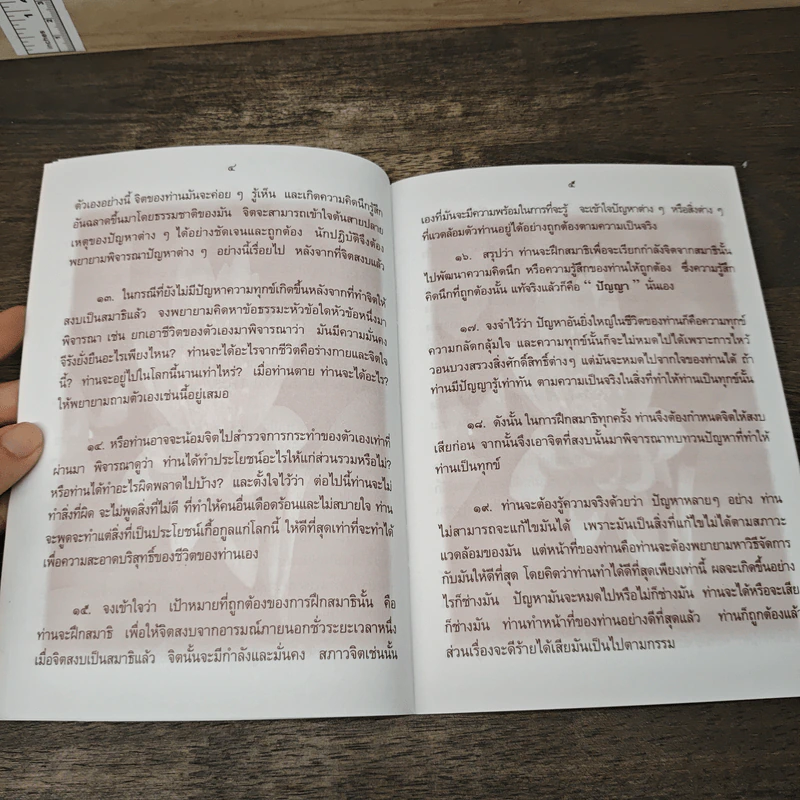 ๔
ตัวเองอย่างนี้ จิตของท่านมันจะค่อย ๆ รู้เห็น และเกิดความคิดนึกรู้สึก
อันฉลาดขึ้นมาโดยธรรมชาติของมัน จิตจะสามารถเข้าใจต้นสายปลาย
เหตุของปัญหาต่าง ๆ ได้อย่างชัดเจนและถูกต้อง นักปฏิบัติจึงต้อง
พยายามพิจารณาปัญหาต่าง ๆ อย่างนี้เรื่อยไป หลังจากที่จิตสงบแล้ว
๑๓. ในกรณีที่ยังไม่มีปัญหาความทุกข์เกิดขึ้นหลังจากที่ทำจิตให้
สงบเป็นสมาธิแล้ว จงพยายามคิดหาข้อธรรมะหัวข้อใดหัวข้อหนึ่งมา
พิจารณา เช่น ยกเอาชีวิตของตัวเองมาพิจารณาว่า มันมีความมั่นคง
จีรังยั่งยืนอะไรเพียงไหน? ท่านจะได้อะไรจากชีวิตคือร่างกายและจิตใจ
นี้? ท่านจะอยู่ไปในโลกนี้นานเท่าไหร่? เมื่อท่านตาย ท่านจะได้อะไร?
ให้พยายามถามตัวเองเช่นนี้อยู่เสมอ
๑๔. หรือท่านอาจจะน้อมจิตไปสำรวจการกระทำของตัวเองเท่าที่
ผ่านมา พิจารณาดูว่า ท่านได้ทำประโยชน์อะไรให้แก่ส่วนรวมหรือไม่?
หรือท่านได้ทำอะไรผิดพลาดไปบ้าง? และตั้งใจไว้ว่า ต่อไปนี้ท่านจะไม่
ทำสิ่งที่ผิด จะไม่พูดสิ่งที่ไม่ดี ที่ทำให้คนอื่นเดือดร้อนและไม่สบายใจ ท่าน
จะพูดจะทำแต่สิ่งที่เป็นประโยชน์เกื้อกูลแก่โลกนี้ ให้ดีที่สุดเท่าที่จะทำได้
เพื่อความสะอาดบริสุทธิ์ของชีวิตของท่านเอง
๑๕. จงเข้าใจว่า เป้าหมายที่ถูกต้องของการฝึกสมาธินั้น คือ
ท่านจะฝึกสมาธิ เพื่อให้จิตสงบจากอารมณ์ภายนอกชั่วระยะเวลาหนึ่ง
เมื่อจิตสงบเป็นสมาธิแล้ว จิตนั้นจะมีกำลังและมั่นคง สภาวจิตเช่นนั้น
๕
เองที่มันจะมีความพร้อมในการที่จะรู้ จะเข้าใจปัญหาต่าง ๆ หรือสิ่งต่าง ๆ
ที่แวดล้อมตัวท่านอยู่ได้อย่างถูกต้องตามความเป็นจริง
๑๖. สรุปว่า ท่านจะฝึกสมาธิเพื่อจะเรียกกำลังจิตจากสมาธินั้น
ไปพัฒนาความคิดนึก หรือความรู้สึกของท่านให้ถูกต้อง ซึ่งความรู้สึก
คิดนึกที่ถูกต้องนั้น แท้จริงแล้วก็คือ “ ปัญญา ” นั่นเอง
๑๗. จงจำไว้ว่า ปัญหาอันยิ่งใหญ่ในชีวิตของท่านก็คือความทุกข์
ความกลัดกลุ้มใจ และความทุกข์นั้นก็จะไม่หมดไปได้เพราะการไหว้
วอนบวงสรวงสิ่งศักดิ์สิทธิ์ต่างๆ แต่มันจะหมดไปจากใจของท่านได้ ถ้า
ท่านมีปัญญารู้เท่าทัน ตามความเป็นจริงในสิ่งที่ทำให้ท่านเป็นทุกข์นั้น
๑๘. ดังนั้น ในการฝึกสมาธิทุกครั้ง ท่านจึงต้องกำหนดจิตให้สงบ
เสียก่อน จากนั้นจึงเอาจิตที่สงบนั้นมาพิจารณาทบทวนปัญหาที่ทำให้
ท่านเป็นทุกข์
๑๙. ท่านจะต้องรู้ความจริงด้วยว่า ปัญหาหลายๆ อย่าง ท่าน
ไม่สามารถจะแก้ไขมันได้ เพราะมันเป็นสิ่งที่แก้ไขไม่ได้ตามสภาวะ
แวดล้อมของมัน แต่หน้าที่ของท่านคือท่านจะต้องพยายามหาวิธีจัดการ
กับมันให้ดีที่สุด โดยคิดว่าท่านทำได้ดีที่สุดเพียงเท่านี้ ผลจะเกิดขึ้นอย่าง
ไรก็ช่างมัน ปัญหามันจะหมดไปหรือไม่ก็ช่างมัน ท่านจะได้หรือจะเสีย
ก็ช่างมัน ท่านทำหน้าที่ของท่านอย่างดีที่สุดแล้ว ท่านก็ถูกต้องแล้ว
ส่วนเรื่องจะดีร้ายได้เสียมันเป็นไปตามกรรม